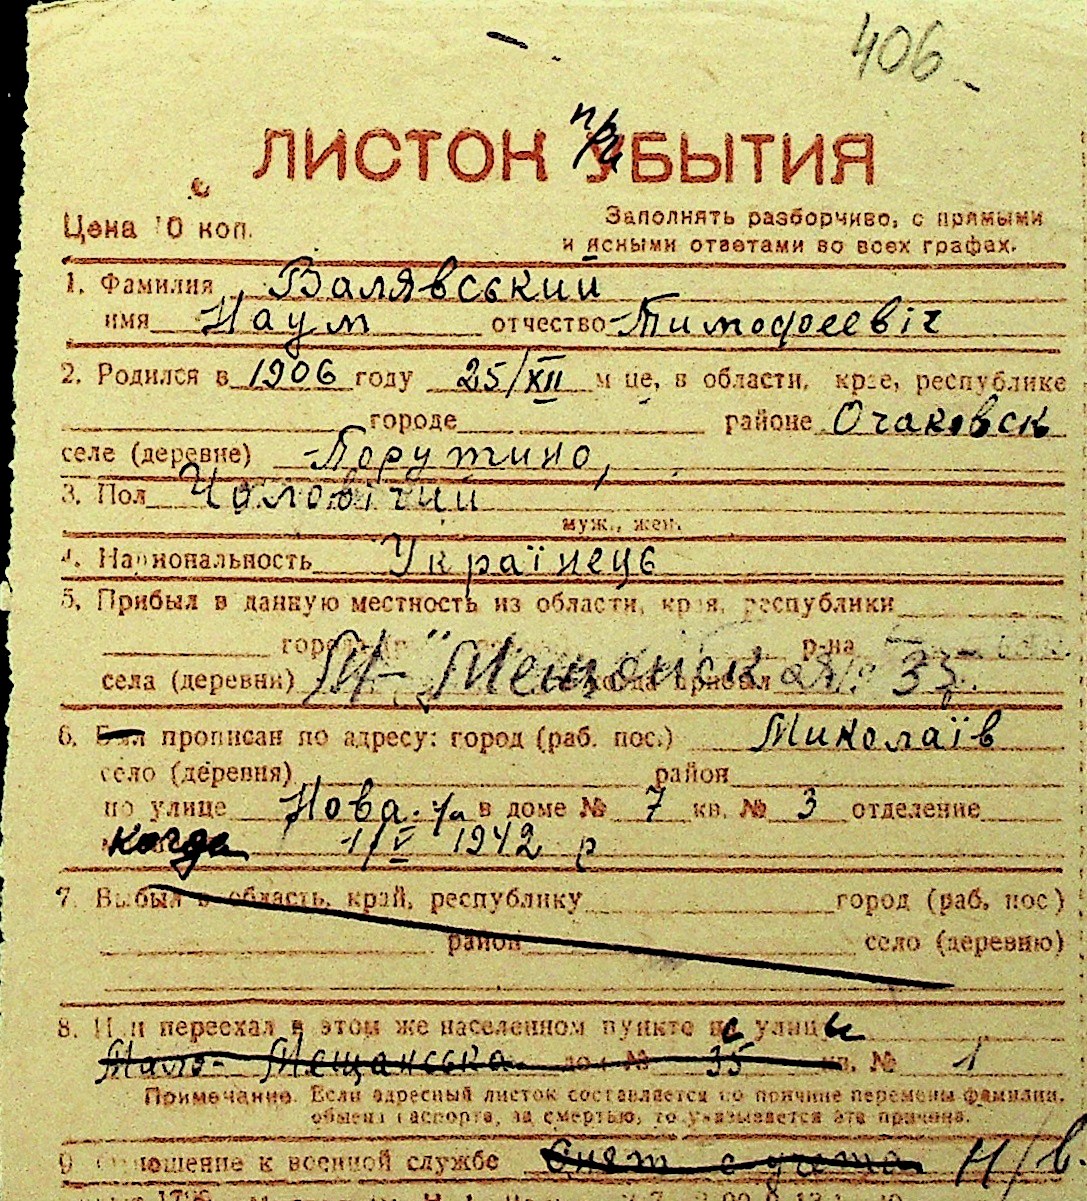 406
ЛИСТОК УБЫТИЯ
при
Цена 10 коп.
Заполнять разборчиво, с прямыми
и ясными ответами во всех графах.
1. Фамилия Валявський
имя Наум отчество Тимофеевіч
2. Родился в 1906 году 25/XII м це, в области, крае, республике
городе районе Очаковск
селе (деревне) Порутино,
3. Пол Чоловічий
муж., жен.
4. Национальность Українець
5. Прибыл в данную местность из области, края, республики
р-на
села (деревни) М- Мещонск 35
6. Был прописан по адресу: город (раб. пос.) Миколаїв
село (деревня) район
по улице Нова в доме № 7 кв. № 3 отделение
когда 1/V 1942 р
7. Выбыл в область, край, республику город (раб. пос)
район село (деревню)
8. Или переехал в этом же населенном пункте с улицы
Мало-Мещанська дом № 35 кв. № 1
Примечание. Если адресный листок составляется по причине перемены фамилии,
обмена паспорта, за смертью, то указывается эта причина.
9 Отношение к военной службе Снят с учета Н/в.